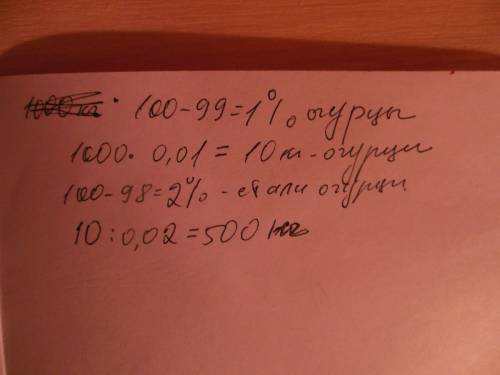 1000 кг. 100-99=1% огурцы
1000 · 0,01 = 10 кг - огурцы
100-98=2% - стали огурцы.
10 : 0,02 = 500 кг